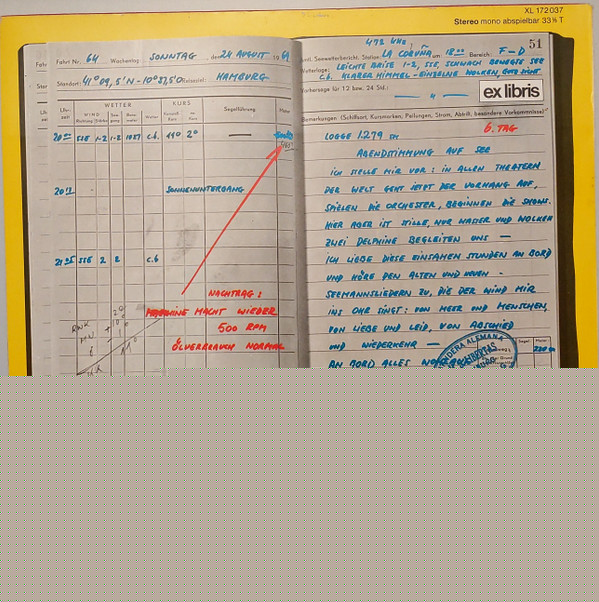 XL 172037
Stereo mono abspielbar 33⅓ T
Fahrt Nr. 64 Wochentag SONNTAG den 24. AUGUST 1969
Standort: 41°09,5'N - 10°57,5'O Reiseziel: HAMBURG
Uhrzeit
WETTER
KURS
Segelführung
Motor
WIND
Richtung Stärke
Wetter
20°° SSE 1-2 1-2 1027 c.6. 110 2° —
20¹² SONNENUNTERGANG
21°⁵ SSE 2 2 c.6
NACHTRAG:
MASCHINE MACHT WIEDER
500 RPM
ÖLVERBRAUCH NORMAL
472 KHz
51
Seewetterbericht. Station LA CORUÑA um 18°° Bereich: F-D
Wetterlage: LEICHTE BRISE 1-2, SSE, SCHWACH BEWEGTE SEE
C.6. KLARER HIMMEL - EINZELNE WOLKEN, GUTE SICHT
Vorhersage für 12 bzw. 24 Std.: — " —
ex libris
Bemerkungen (Schiffsort, Kursmarken, Peilungen, Strom, Abtrift, besondere Vorkommnisse)
6. TAG
LOGGE 1279 sm
ABENDSTIMMUNG AUF SEE
ICH STELLE MIR VOR: IN ALLEN THEATERN
DER WELT GEHT JETZT DER VORHANG AUF,
SPIELEN DIE ORCHESTER, BEGINNEN DIE SHOWS.
HIER ABER IST STILLE, NUR WASSER UND WOLKEN
ZWEI DELPHINE BEGLEITEN UNS —
ICH LIEBE DIESE EINSAMEN STUNDEN AN BORD
UND HÖRE DEN ALTEN UND NEUEN
SEEMANNSLIEDERN ZU, DIE DER WIND MIR
INS OHR SINGT: VON MEER UND MENSCHEN,
VON LIEBE UND LEID, VON ABSCHIED
UND WIEDERKEHR —
AN BORD ALLES
Segel
Motor
ALEMANA